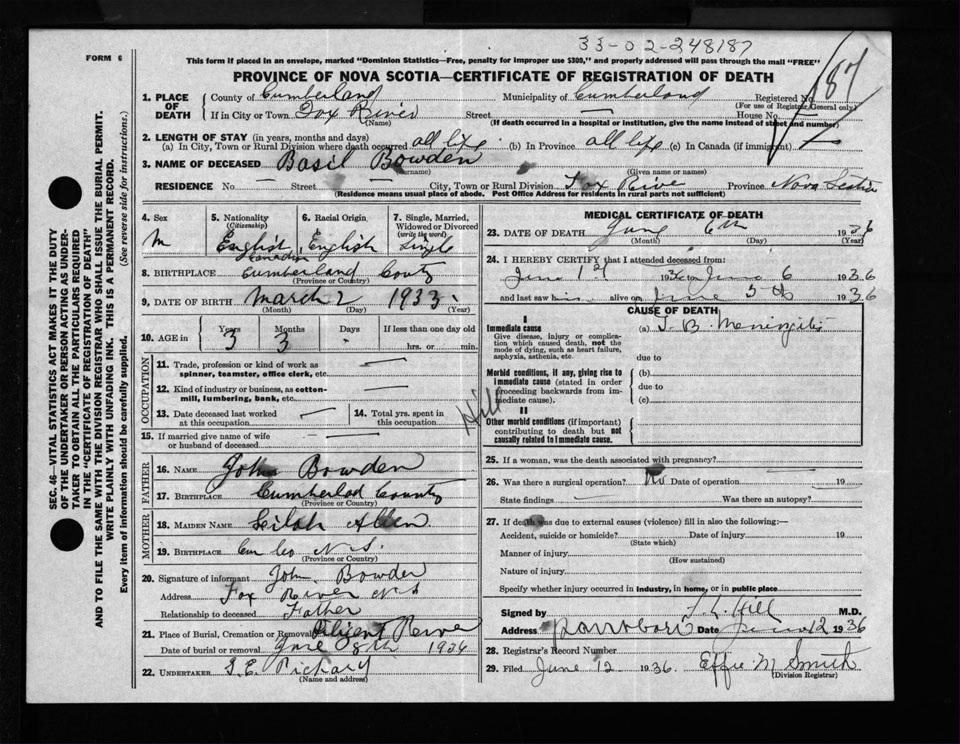 33-02-248187
FORM 6
This form if placed in an envelope, marked "Dominion Statistics—Free, penalty for improper use $300," and properly addressed will pass through the mail "FREE"
PROVINCE OF NOVA SCOTIA—CERTIFICATE OF REGISTRATION OF DEATH
187
1. PLACE OF DEATH
County of Cumberland Municipality of Cumberland Registered No.
(For use of Registrar General only)
If in City or Town Fox River Street — House No.
(Name) (If death occurred in a hospital or institution, give the name instead of street and number)
2. LENGTH OF STAY (in years, months and days)
(a) In City, Town or Rural Division where death occurred all life (b) In Province all life (c) In Canada (if immigrant)
3. NAME OF DECEASED Basil Bowden
(Surname) (Given name or names)
RESIDENCE No. — Street — City, Town or Rural Division Fox River Province Nova Scotia
(Residence means usual place of abode. Post Office Address for residents in rural parts not sufficient)
4. Sex
M
5. Nationality
(Citizenship)
English
Canadian
6. Racial Origin
English
7. Single, Married, Widowed or Divorced
(write the word)
Single
8. BIRTHPLACE Cumberland Couty
(Province or Country)
9. DATE OF BIRTH March 2 1933
(Month) (Day) (Year)
10. AGE in
Years Months Days If less than one day old
3 3 hrs. or min.
OCCUPATION
11. Trade, profession or kind of work as spinner, teamster, office clerk, etc. —
12. Kind of industry or business, as cotton-mill, lumbering, bank, etc. —
13. Date deceased last worked at this occupation —
14. Total yrs. spent in this occupation
Hill
15. If married give name of wife or husband of deceased —
FATHER
16. NAME John Bowden
17. BIRTHPLACE Cumberlad County
(Province or Country)
MOTHER
18. MAIDEN NAME Leilah Allen
19. BIRTHPLACE Cum Co N.S.
(Province or Country)
20. Signature of informant John Bowden
Address Fox River N.S
Relationship to deceased Father
21. Place of Burial, Cremation or Removal River
Date of burial or removal June 8th 1936
22. UNDERTAKER
(Name and address)
MEDICAL CERTIFICATE OF DEATH
23. DATE OF DEATH June 6th 1936
(Month) (Day) (Year)
24. I HEREBY CERTIFY that I attended deceased from:
June 1st 1936 to June 6 1936
and last saw him alive on June 5th 1936
CAUSE OF DEATH
I
Immediate cause (a) T. B. Meningitis
Give disease, injury or complication which caused death, not the mode of dying, such as heart failure, asphyxia, asthenia, etc.
due to
Morbid conditions, if any, giving rise to immediate cause (stated in order proceeding backwards from immediate cause).
(b)
due to
(c)
II
Other morbid conditions (if important) contributing to death but not causally related to immediate cause.
25. If a woman, was the death associated with pregnancy?
26. Was there a surgical operation? No Date of operation 19
State findings — Was there an autopsy?
27. If death was due to external causes (violence) fill in also the following:—
Accident, suicide or homicide? Date of injury 19
(State which)
Manner of injury
(How sustained)
Nature of injury
Specify whether injury occurred in industry, in home, or in public place
Signed by Hill M.D.
Address Parrsboro Date June 12 1936
28. Registrar's Record Number
29. Filed June 12 1936. Effie M Smith
(Division Registrar)
SEC. 46—VITAL STATISTICS ACT MAKES IT THE DUTY
OF THE UNDERTAKER OR PERSON ACTING AS UNDER-
TAKER TO OBTAIN ALL THE PARTICULARS REQUIRED
IN THE "CERTIFICATE OF REGISTRATION OF DEATH"
AND TO FILE THE SAME WITH THE DIVISION REGISTRAR WHO SHALL ISSUE THE BURIAL PERMIT.
WRITE PLAINLY WITH UNFADING INK. THIS IS A PERMANENT RECORD.
Every item of information should be carefully supplied. (See reverse side for instructions.)